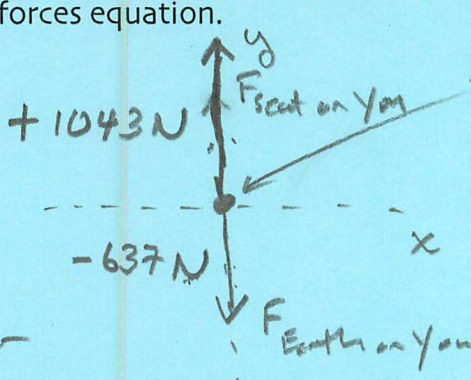 forces equation.
y
F seat on you
+1043N
x
-637N
F Earth on you